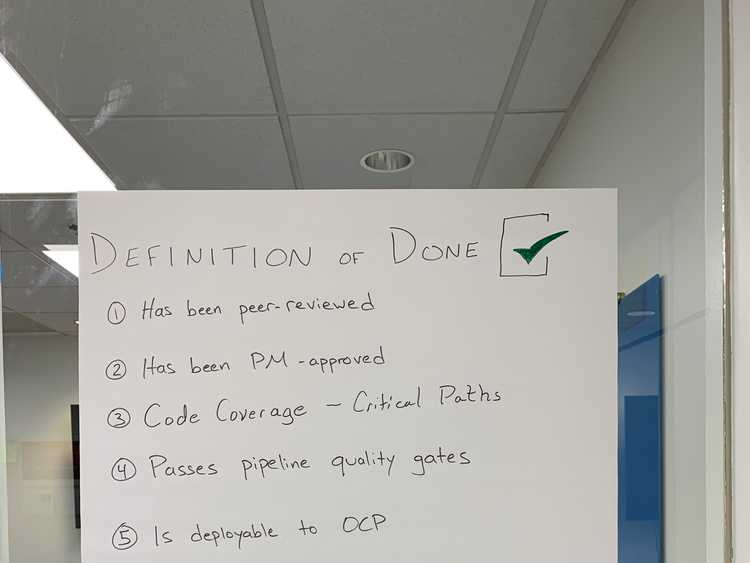 DEFINITION OF DONE
① Has been peer-reviewed
② Has been PM-approved
③ Code Coverage – Critical Paths
④ Passes pipeline quality gates
⑤ Is deployable to OCP